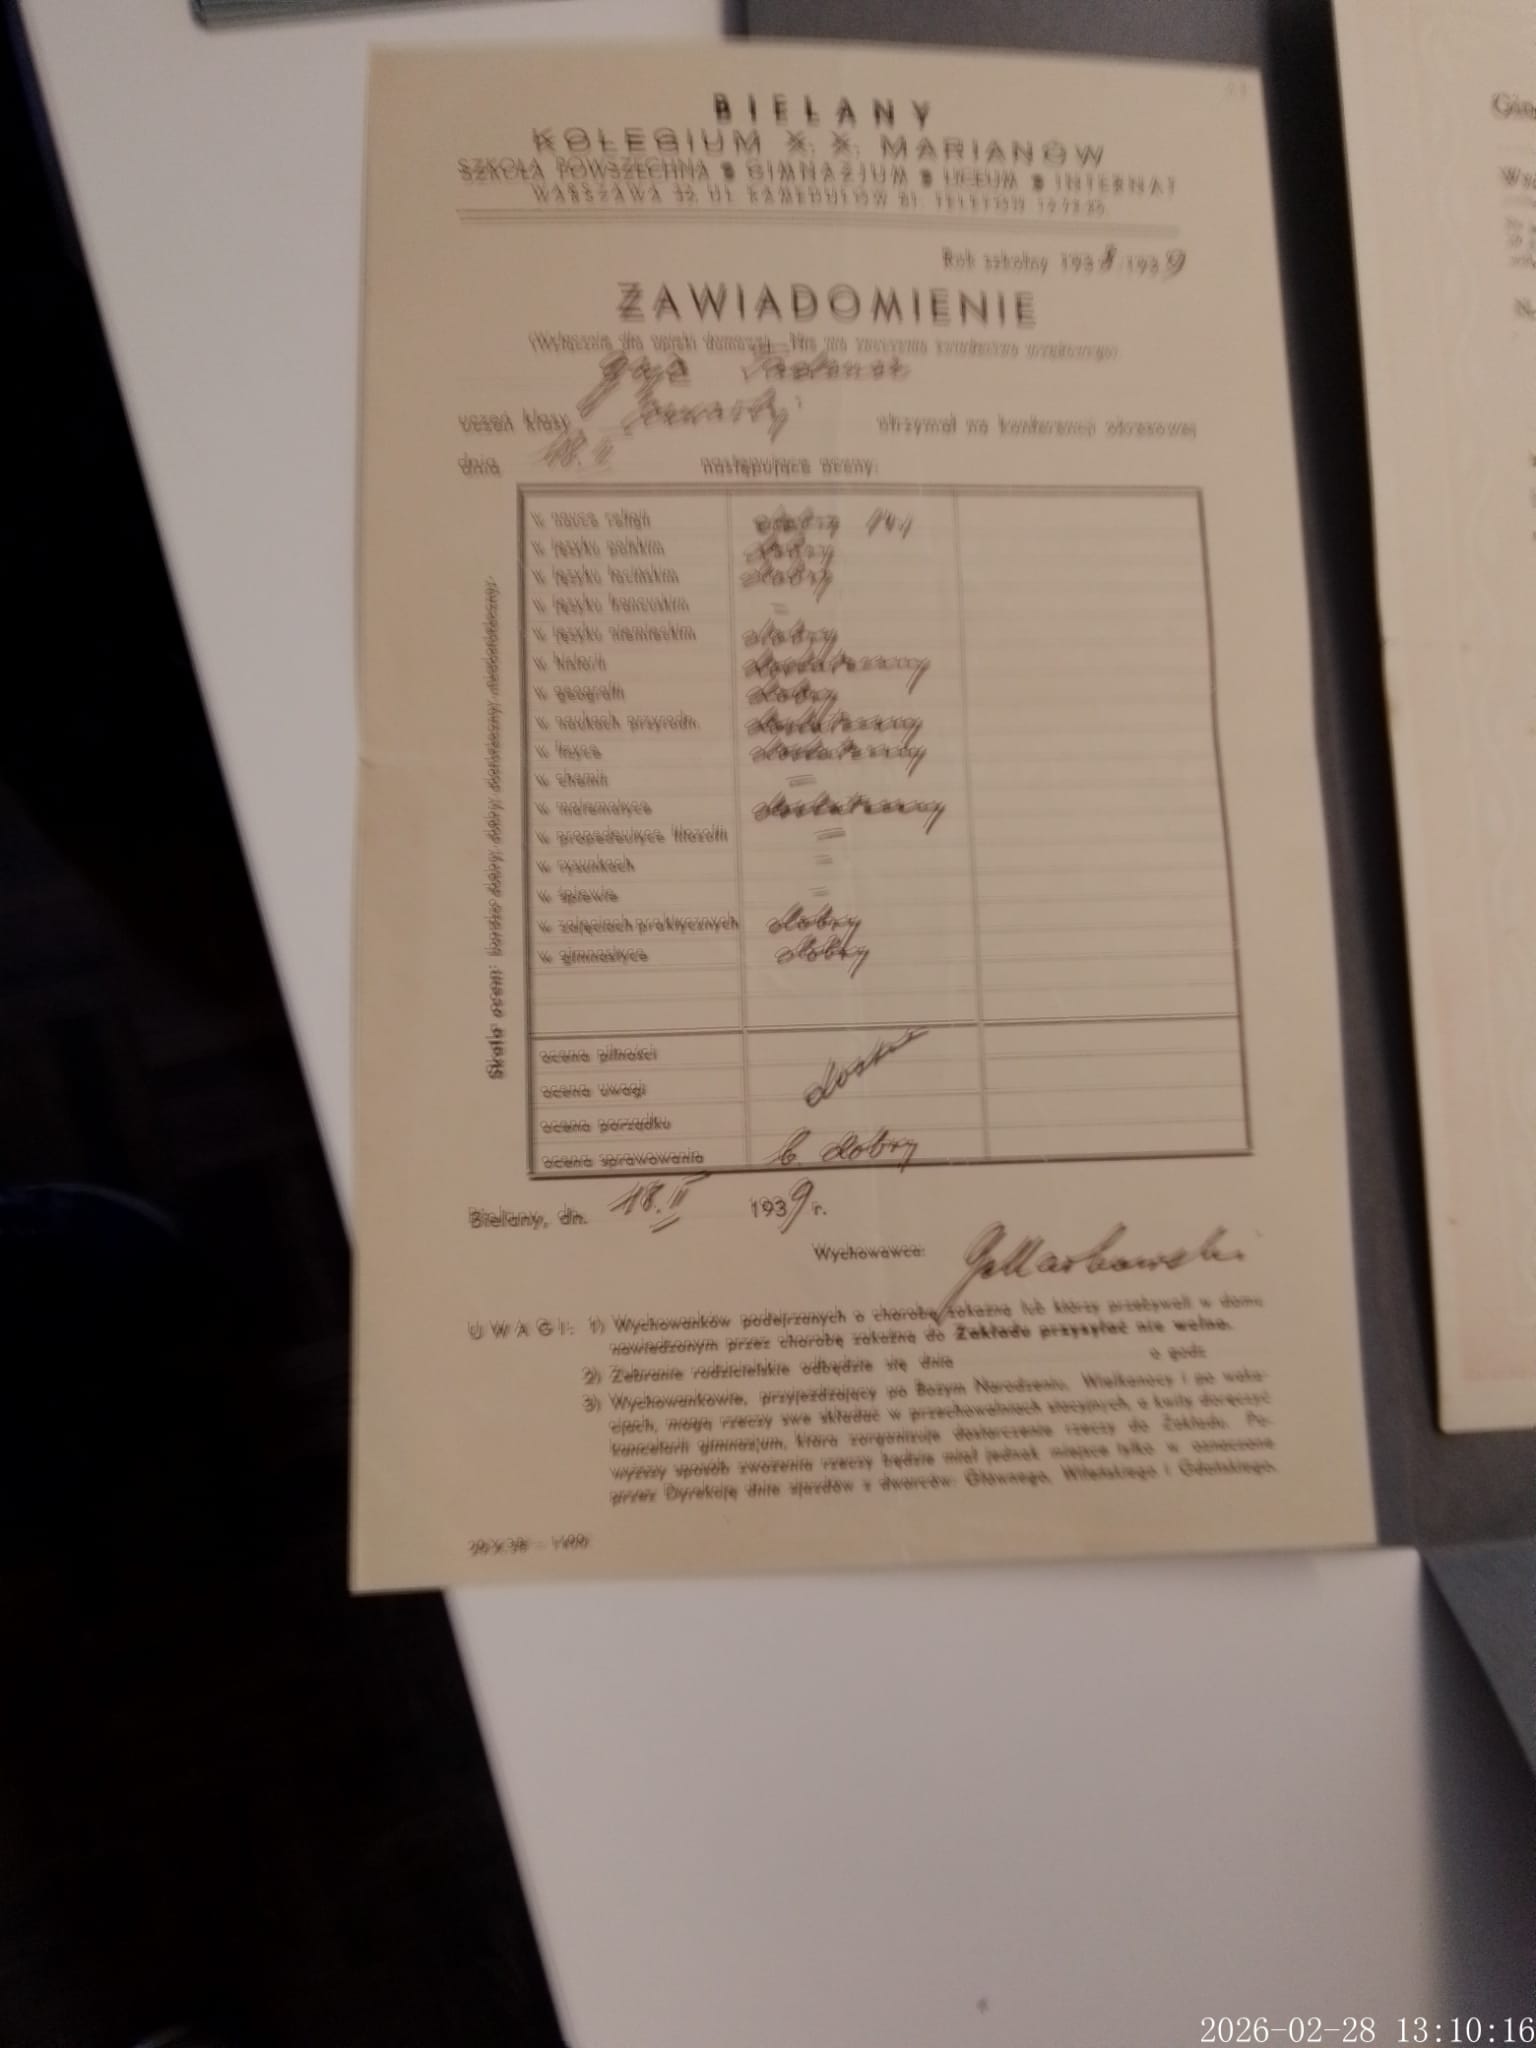 BIELANY
KOLEGIUM X. X. MARIANÓW
SZKOŁA POWSZECHNA GIMNAZJUM LICEUM INTERNAT
WARSZAWA 32, UL. KAMEDUŁÓW TELEFON
Rok szkolny 1938/1939
ZAWIADOMIENIE
(Wyłącznie dla opieki domowej. Nie ma znaczenia świadectwa urzędowego)
uczeń klasy otrzymał na konferencji okresowej
dnia 18. II następujące oceny:
Skala ocen: bardzo dobry, dobry, dostateczny, niedostateczny.
w nauce religii dobry
w języku polskim dobry
w języku łacińskim dobry
w języku francuskim =
w języku niemieckim dobry
w historii dostateczny
w geografii dobry
w naukach przyrodn. dostateczny
w fizyce dostateczny
w chemii =
w matematyce dostateczny
w propedeutyce filozofii =
w rysunkach =
w śpiewie =
w zajęciach praktycznych dobry
w gimnastyce dobry
ocena pilności
ocena uwagi
ocena porządku
ocena sprawowania b. dobry
Bielany, dn. 18. II 1939 r.
Wychowawca:
UWAGI: 1) Wychowanków podejrzanych o chorobę zakaźną lub którzy przebywali w domu
nawiedzonym przez chorobę zakaźną do Zakładu przysyłać nie wolno.
2) Zebranie rodzicielskie odbędzie się dnia o godz
3) Wychowankowie, przyjeżdżający po Bożym Narodzeniu, Wielkanocy i po waka-
cjach, mogą rzeczy swe składać w przechowalniach stacyjnych, a kwity doręczyć
kancelarii gimnazjum, która zorganizuje dostarczenie rzeczy do Zakładu. Po-
wyższy sposób zwożenia rzeczy będzie miał jednak miejsce tylko w oznaczone
przez Dyrekcję dnie zjazdów z dworców: Głównego, Wileńskiego i Gdańskiego.
2026-02-28 13:10:16